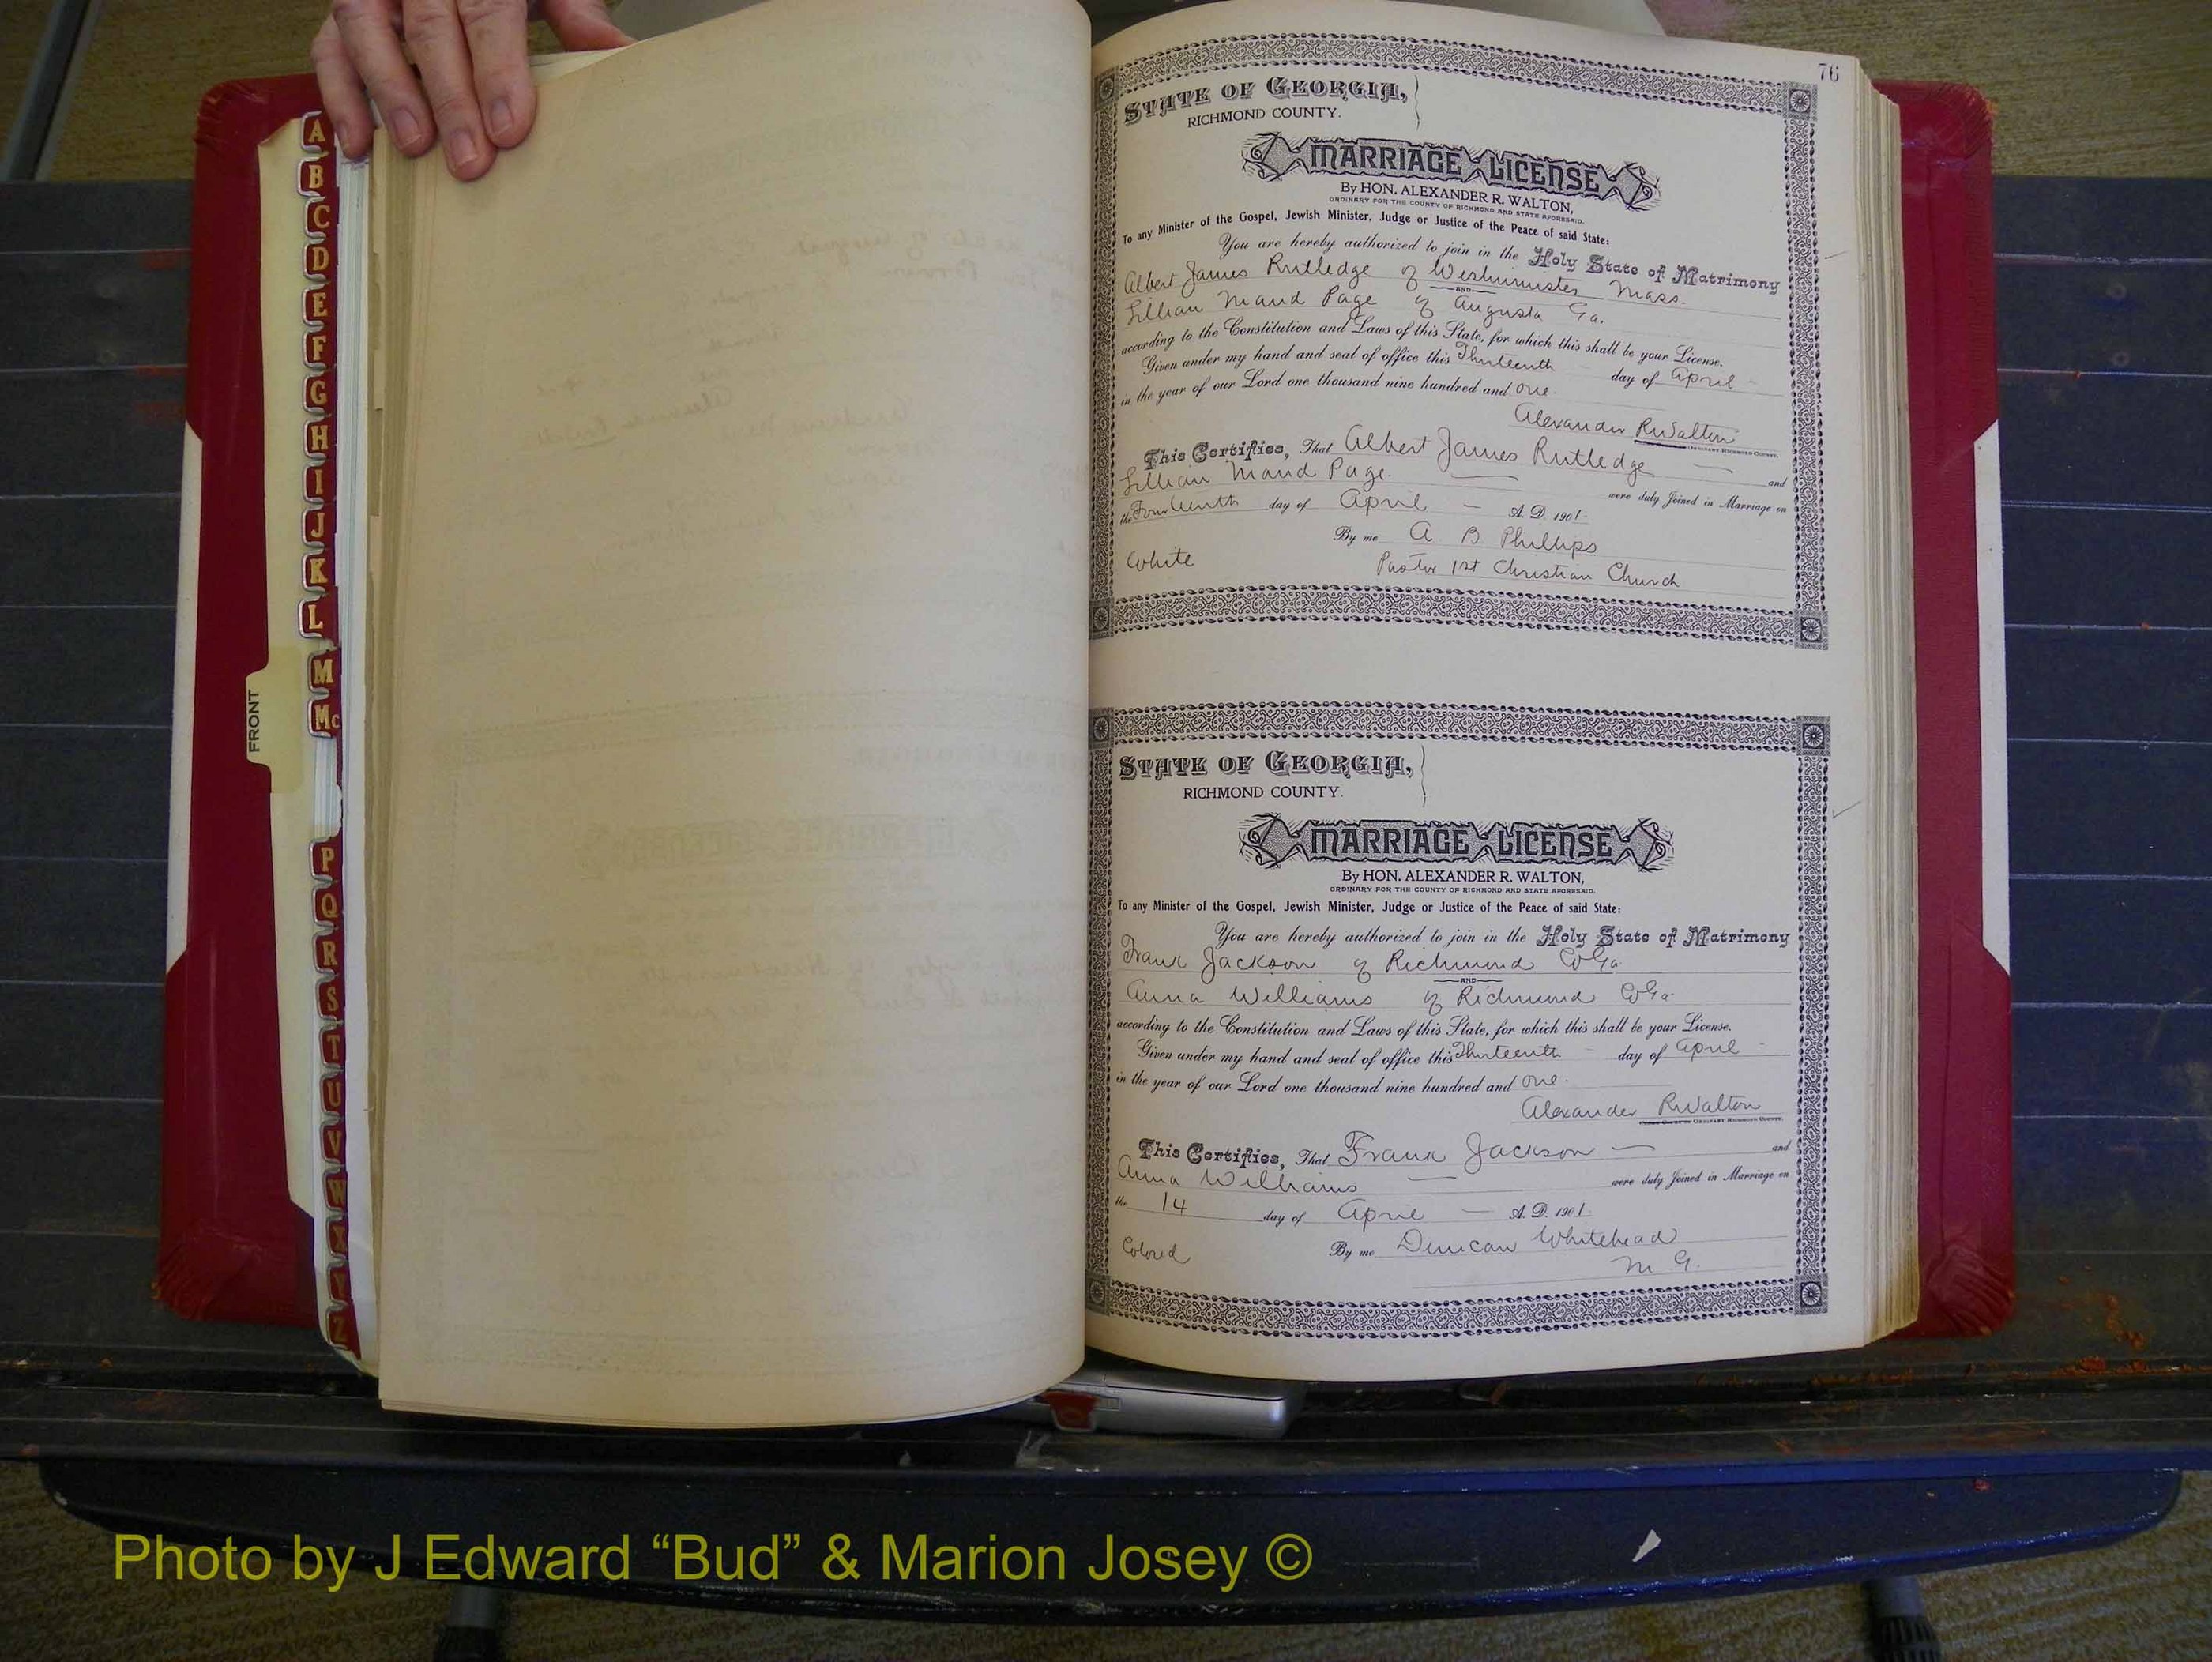 A
B
C
D
E
F
G
H
I
J
K
L
M
Mc
FRONT
P
Q
R
S
T
U
V
W
X
Y
Z
76
STATE OF GEORGIA,
RICHMOND COUNTY.
MARRIAGE LICENSE
By HON. ALEXANDER R. WALTON,
ORDINARY FOR THE COUNTY OF RICHMOND AND STATE AFORESAID.
To any Minister of the Gospel, Jewish Minister, Judge or Justice of the Peace of said State:
You are hereby authorized to join in the Holy State of Matrimony
Albert James Rutledge of Westminister Mass.
AND
Lillian Maud Page of Augusta Ga.
according to the Constitution and Laws of this State, for which this shall be your License.
Given under my hand and seal of office this Thirteenth day of April
in the year of our Lord one thousand nine hundred and one.
Alexander R Walton
ORDINARY RICHMOND COUNTY.
This Certifies, That Albert James Rutledge and
Lillian Maud Page. were duly Joined in Marriage on
the Fourteenth day of April A. D. 1901.
By me A B Phillips
White Pastor 1st Christian Church
STATE OF GEORGIA,
RICHMOND COUNTY.
MARRIAGE LICENSE
By HON. ALEXANDER R. WALTON,
ORDINARY FOR THE COUNTY OF RICHMOND AND STATE AFORESAID.
To any Minister of the Gospel, Jewish Minister, Judge or Justice of the Peace of said State:
You are hereby authorized to join in the Holy State of Matrimony
Frank Jackson of Richmond Co Ga
AND
Anna Williams of Richmond Co Ga.
according to the Constitution and Laws of this State, for which this shall be your License.
Given under my hand and seal of office this Thirteenth day of April
in the year of our Lord one thousand nine hundred and one.
Alexander R Walton
ORDINARY RICHMOND COUNTY.
This Certifies, That Frank Jackson and
Anna Williams were duly Joined in Marriage on
the 14 day of April A. D. 1901.
Colored By me Duncan Whitehead
M. G.
Photo by J Edward “Bud” & Marion Josey ©